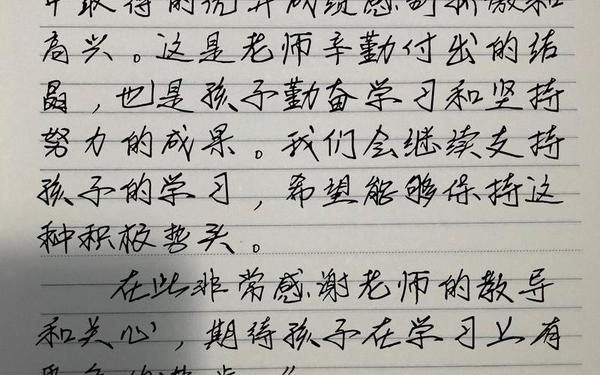 中取得的优异成绩感到骄傲和
高兴。这是老师辛勤付出的结
晶，也是孩子勤奋学习和坚持
努力的成果。我们会继续支持
孩子的学习，希望能够保持这
种积极势头。
在此非常感谢老师的教导
和关心，期待孩子在学习上有